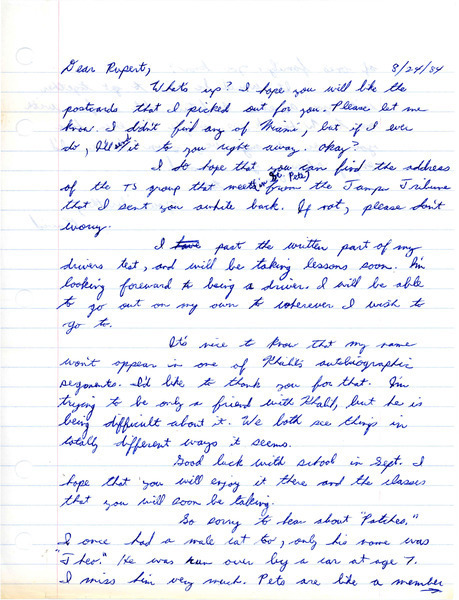 Dear Rupert, 8/24/84
What's up? I hope you will like the
postcards that I picked out for you. Please let me
know. I didn't find any of Miami, but if I ever
do, I'll sent it to you right away. Okay?
I do hope that you can find the address
of the TS group that meets (in St. Pete) from the Tampa Tribune
that I sent you awhile back. If not, please don't
worry.
I have past the written part of my
drivers test, and will be taking lessons soon. I'm
looking foreward to being a driver. I will be able
to go out on my own to wherever I wish to
go to.
It's nice to know that my name
won't appear in one of Khalil's autobiographic
segments. I'd like to thank you for that. I'm
trying to be only a friend with Khalil, but he is
being difficult about it. We both see things in
totally different ways it seems.
Good luck with school in Sept. I
hope that you will enjoy it there and the classes
that you will soon be taking.
So sorry to hear about "Patches."
I once had a male cat too, only his name was
"Theo." He was run over by a car at age 7.
I miss him very much. Pets are like a member